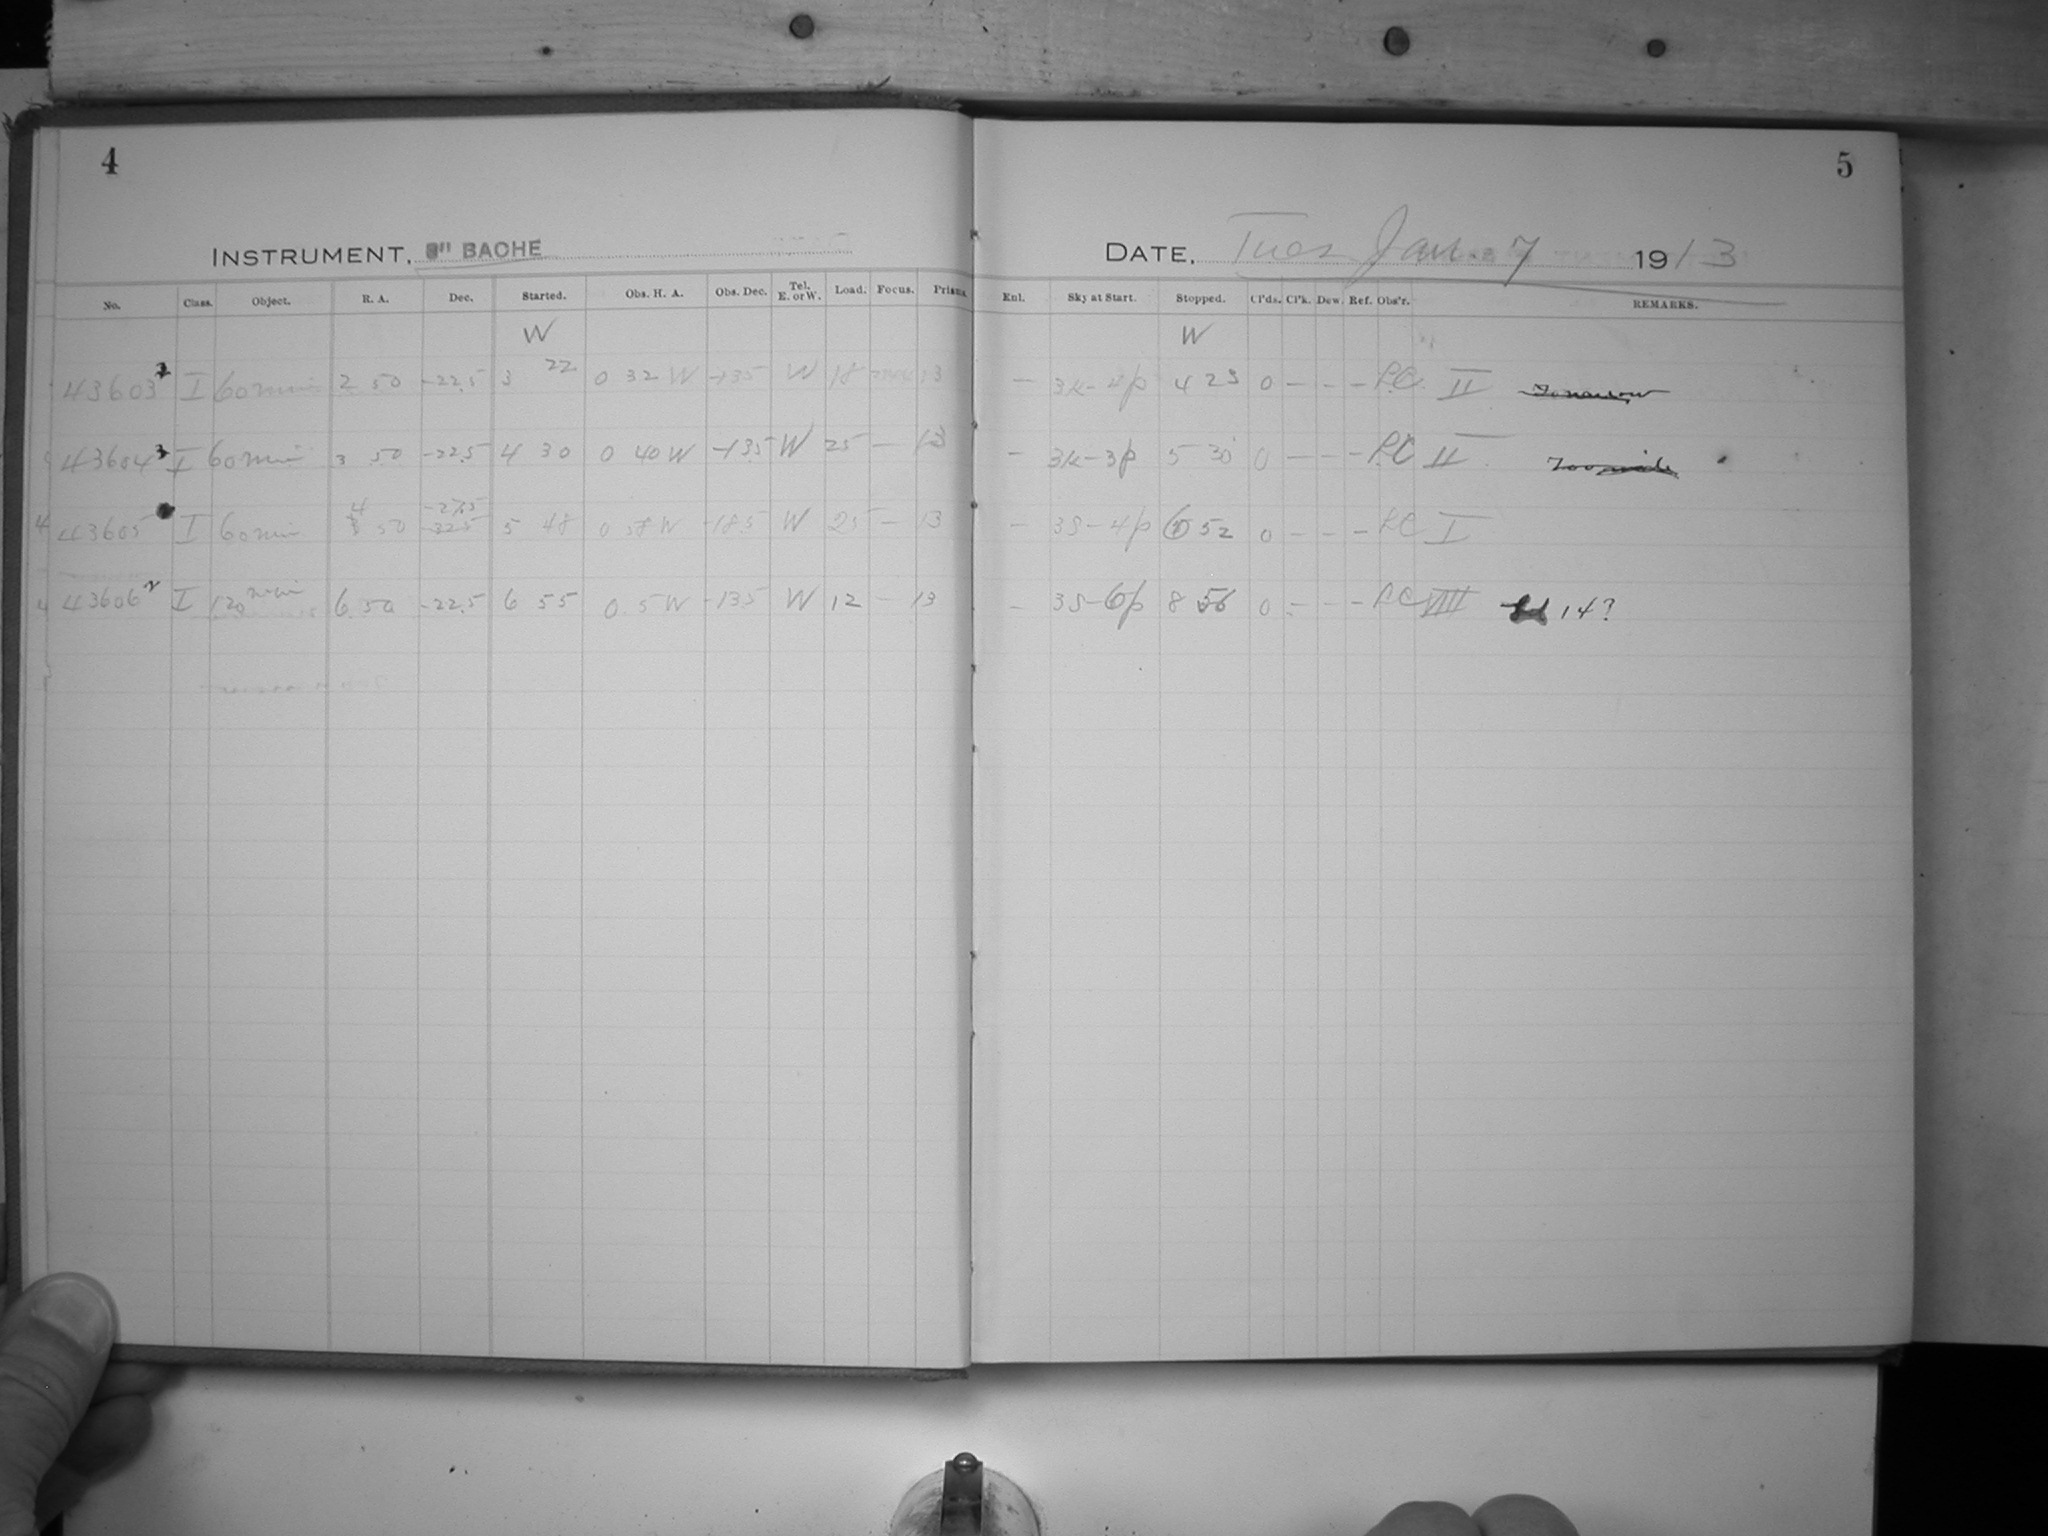 4
INSTRUMENT, 8" BACHE
No. Class. Object. R. A. Dec. Started. Obs. H. A. Obs. Dec. Tel. E. or W. Load. Focus. Prisms
W
43603 I 60 min 2 50 -22.5 3 22 0 32 W -13.5 W 18 13
43604 I 60 min 3 50 -22.5 4 30 0 40 W -13.5 W 25 — 13
43605 I 60 min 4 50 5 48 0 58 W -18.5 W 25 — 13
43606 I 120 min 6 50 -22.5 6 55 0 5 W -13.5 W 12 — 13
5
DATE, Tues Jan. 7 1913
Enl. Sky at Start. Stopped. Cl'ds. Cl'k. Dew. Ref. Obs'r. REMARKS.
W
— 4 23 0 — — — II
— 3k-3p 5 30 0 — — — II
— 3S-4p 6 52 0 — — — I
— 3S-6p 8 56 0 — — — VIII 14?